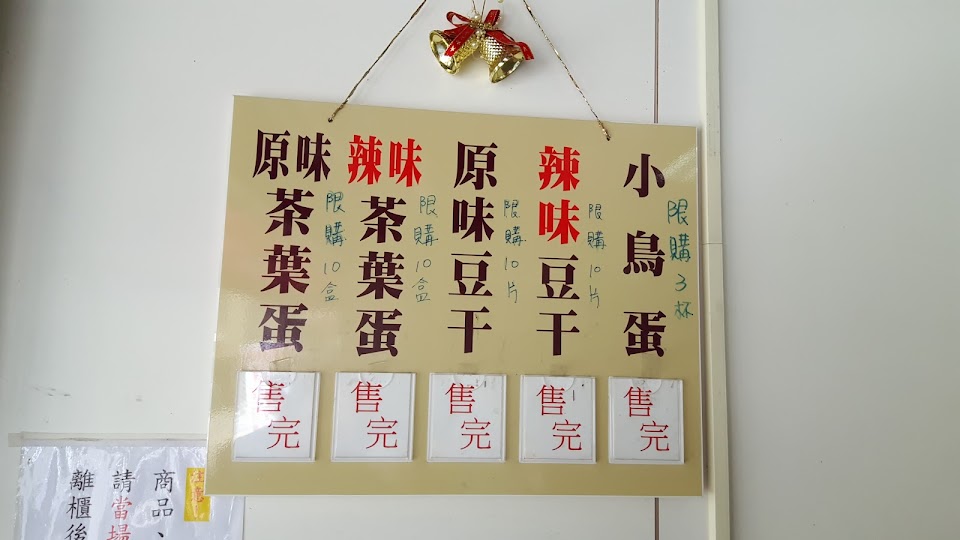 原味茶葉蛋
限購10盒
售完
辣味茶葉蛋
限購10盒
售完
原味豆干
限購10片
售完
辣味豆干
限購10片
售完
小鳥蛋
限購3杯
售完
注意
商品、
請當場
離櫃後